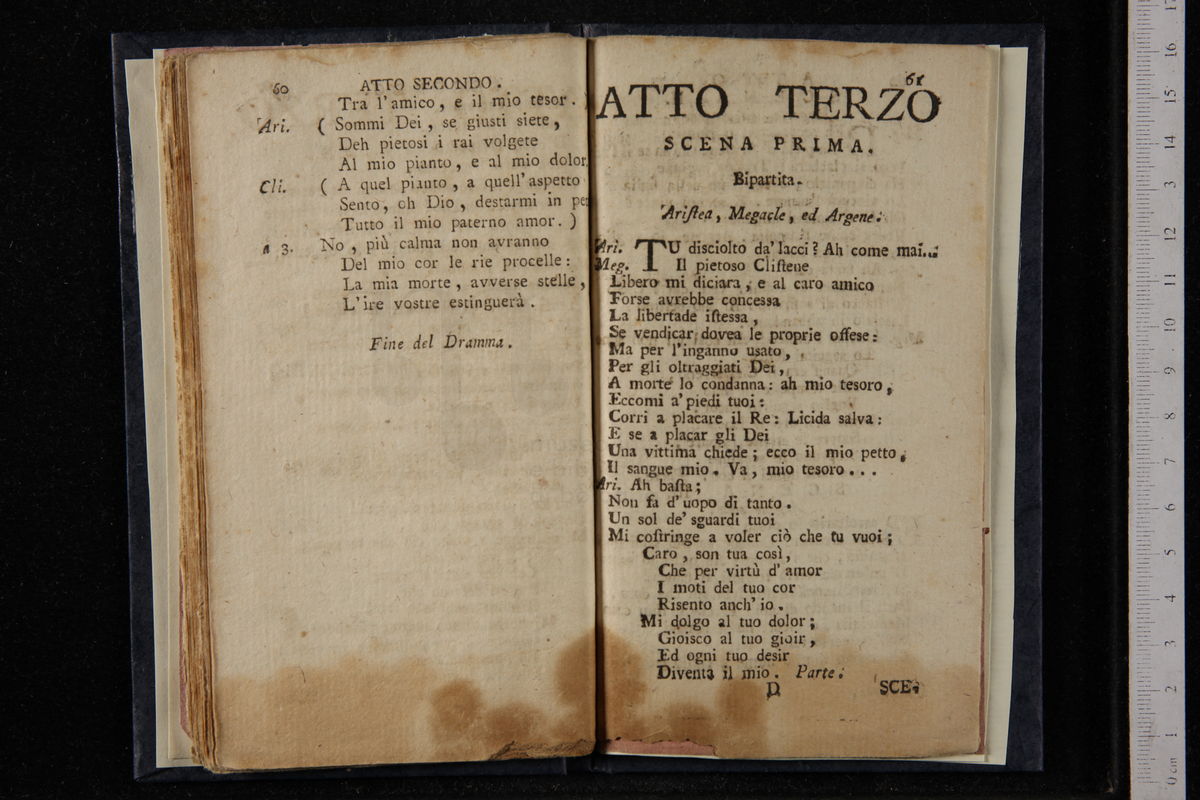 60 ATTO SECONDO.
Tra l'amico, e il mio tesor. )
Ari. ( Sommi Dei, se giusti siete,
Deh pietosi i rai volgete
Al mio pianto, e al mio dolor.
Cli. ( A quel pianto, a quell'aspetto
Sento, oh Dio, destarmi in
Tutto il mio paterno amor. )
a 3. No, più calma non avranno
Del mio cor le rie procelle:
La mia morte, avverse stelle,
L'ire vostre estinguerà.
Fine del Dramma.
61
ATTO TERZO
SCENA PRIMA.
Bipartita.
Ariſtea, Megacle, ed Argene.
Ari. TU disciolto da' lacci? Ah come mai...
Meg. Il pietoso Cliſtene
Libero mi diciara, e al caro amico
Forse avrebbe concessa
La libertade iſtessa,
Se vendicar dovea le proprie offese:
Ma per l'inganno usato,
Per gli oltraggiati Dei,
A morte lo condanna: ah mio tesoro,
Eccomi a' piedi tuoi:
Corri a placare il Re: Licida salva:
E se a placar gli Dei
Una vittima chiede; ecco il mio petto,
Il sangue mio. Va, mio tesoro...
Ari. Ah baſta;
Non fa d'uopo di tanto.
Un sol de' sguardi tuoi
Mi coſtringe a voler ciò che tu vuoi;
Caro, son tua così,
Che per virtù d'amor
I moti del tuo cor
Risento anch'io.
Mi dolgo al tuo dolor;
Gioisco al tuo gioir,
Ed ogni tuo desir
Diventa il mio. Parte.
D SCE-
0 cm 1 2 3 4 5 6 7 8 9 10 11 12 13 14 15 16 17